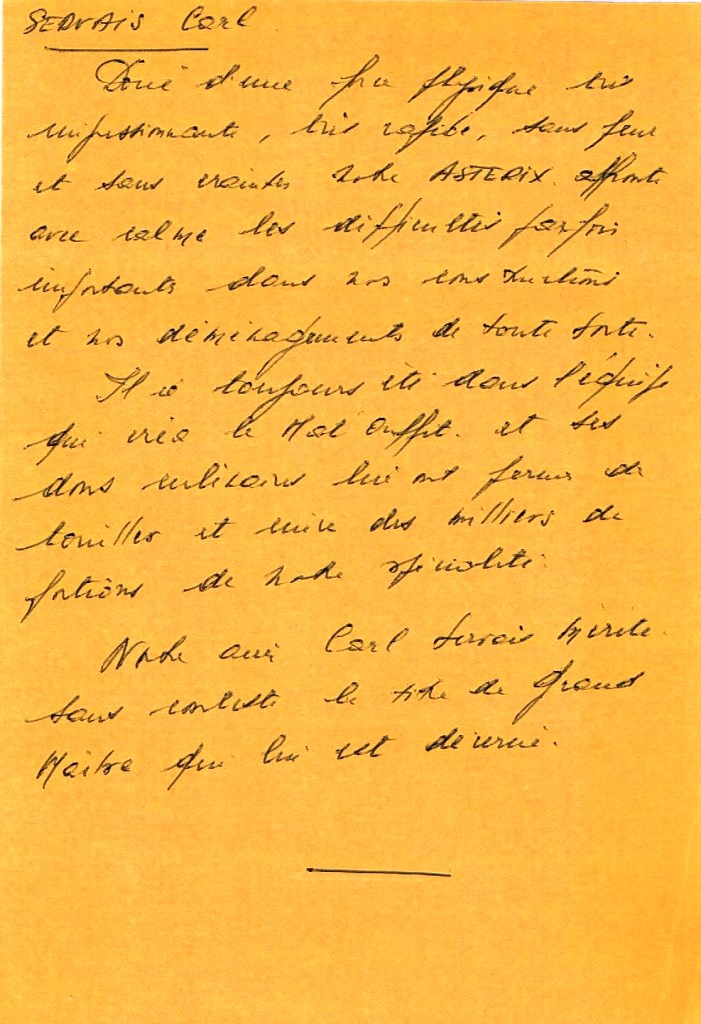 SERVAIS Carl
Doué d'une force physique très
impressionnante, très rapide, sans peur
et sans craintes notre ASTERIX. affronte
avec calme les difficultés parfois
importants dans nos constructions
et nos déménagements de toute sorte.
Il a toujours été dans l'équipe
qui créa le Mat et ses
dons culinaires lui ont permis de
touiller et cuire des milliers de
portions de notre spécialité.
Notre ami Carl Servais mérite
sans conteste le titre de Grand
Maître qui lui est décerné.